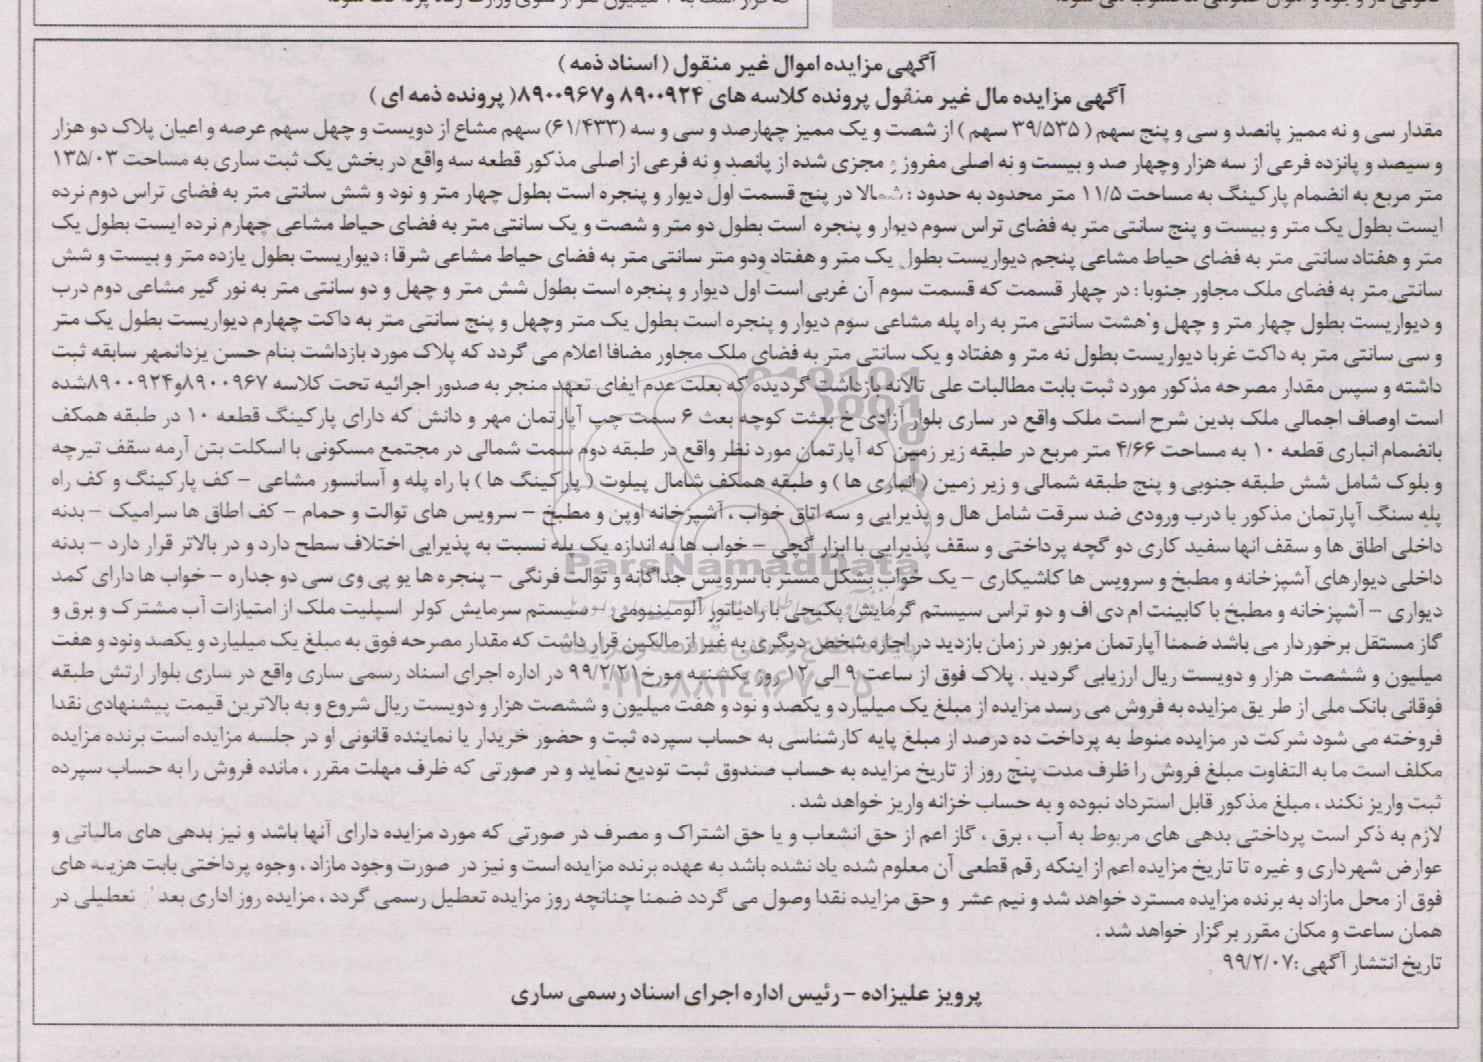 آگهی مزایده اموال غیر منقول ( اسناد ذمه )
آگهی مزایده مال غیر منقول پرونده کلاسه های ۸۹۰۰۹۲۴ و۸۹۰۰۹۶۷( پرونده ذمه ای )
مقدار سی و نه ممیز پانصد و سی و پنج سهم ( ۳۹/۵۳۵ سهم ) از شصت و یک ممیز چهارصد و سی و سه (۶۱/۴۳۳) سهم مشاع از دویست و چهل سهم عرصه و اعیان پلاک دو هزار
و سیصد و پانزده فرعی از سه هزار وچهار صد و بیست و نه اصلی مفروز و مجزی شده از پانصد و نه فرعی از اصلی مذکور قطعه سه واقع در بخش یک ثبت ساری به مساحت ۱۳۵/۰۳
متر مربع به انضمام پارکینگ به مساحت ۱۱/۵ متر محدود به حدود : شمالا در پنج قسمت اول دیوار و پنجره است بطول چهار متر و نود و شش سانتی متر به فضای تراس دوم نرده
ایست بطول یک متر و بیست و پنج سانتی متر به فضای تراس سوم دیوار و پنجره است بطول دو متر و شصت و یک سانتی متر به فضای حیاط مشاعی چهارم نرده ایست بطول یک
متر و هفتاد سانتی متر به فضای حیاط مشاعی پنجم دیواریست بطول یک متر و هفتاد ودو متر سانتی متر به فضای حیاط مشاعی شرقا : دیواریست بطول یازده متر و بیست و شش
سانتی متر به فضای ملک مجاور جنوبا : در چهار قسمت که قسمت سوم آن غربی است اول دیوار و پنجره است بطول شش متر و چهل و دو سانتی متر به نور گیر مشاعی دوم درب
و دیواریست بطول چهار متر و چهل و هشت سانتی متر به راه پله مشاعی سوم دیوار و پنجره است بطول یک متر وچهل و پنج سانتی متر به داکت چهارم دیواریست بطول یک متر
و سی سانتی متر به داکت غربا دیواریست بطول نه متر و هفتاد و یک سانتی متر به فضای ملک مجاور مضافا اعلام می گردد که پلاک مورد بازداشت بنام حسن یزدانمهر سابقه ثبت
داشته و سپس مقدار مصرحه مذکور مورد ثبت بابت مطالبات علی تالانه بازداشت گردیده که بعلت عدم ایفای تعهد منجر به صدور اجرائیه تحت کلاسه ۸۹۰۰۹۶۷و۸۹۰۰۹۲۴شده
است اوصاف اجمالی ملک بدین شرح است ملک واقع در ساری بلوار آزادی خ بعثت کوچه بعث ۶ سمت چپ آپارتمان مهر و دانش که دارای پارکینگ قطعه ۱۰ در طبقه همکف
بانضمام انباری قطعه ۱۰ به مساحت ۴/۶۶ متر مربع در طبقه زیر زمین که آپارتمان مورد نظر واقع در طبقه دوم سمت شمالی در مجتمع مسکونی با اسکلت بتن آرمه سقف تیرچه
و بلوک شامل شش طبقه جنوبی و پنج طبقه شمالی و زیر زمین ( انباری ها ) و طبقه همکف شامال پیلوت ( پارکینگ ها ) با راه پله و آسانسور مشاعی – کف پارکینگ و کف راه
پله سنگ آپارتمان مذکور با درب ورودی ضد سرقت شامل هال و پذیرایی و سه اتاق خواب ، آشپزخانه اوپن و مطبخ – سرویس های توالت و حمام – کف اطاق ها سرامیک – بدنه
داخلی اطاق ها و سقف انها سفید کاری دو گچه پرداختی و سقف پذیرایی با ابزار گچی – خواب ها به اندازه یک پله نسبت به پذیرایی اختلاف سطح دارد و در بالاتر قرار دارد – بدنه
داخلی دیوارهای آشپزخانه و مطبخ و سرویس ها کاشیکاری – یک خواب بشکل مستر با سرویس جداگانه و توالت فرنگی – پنجره ها یو پی وی سی دو جداره – خواب ها دارای کمد
دیواری – آشپزخانه و مطبخ با کابینت ام دی اف و دو تراس سیستم گرمایش پکیجی با رادیاتور آلومینیومی – سیستم سرمایش کولر اسپلیت ملک از امتیازات آب مشترک و برق و
گاز مستقل برخوردار می باشد ضمنا آپارتمان مزبور در زمان بازدید در اجازه شخص دیگری به غیر از مالکین قرار داشت که مقدار مصرحه فوق به مبلغ یک میلیارد و یکصد ونود و هفت
میلیون و ششصت هزار و دویست ریال ارزیابی گردید . پلاک فوق از ساعت ۹ الی ۱۲ روز یکشنبه مورخ ۹۹/۲/۲۱ در اداره اجرای اسناد رسمی ساری واقع در ساری بلوار ارتش طبقه
فوقانی بانک ملی از طریق مزایده به فروش می رسد مزایده از مبلغ یک میلیارد و یکصد و نود و هفت میلیون و ششصت هزار و دویست ریال شروع و به بالاترین قیمت پیشنهادی نقدا
فروخته می شود شرکت در مزایده منوط به پرداخت ده درصد از مبلغ پایه کارشناسی به حساب سپرده ثبت و حضور خریدار یا نماینده قانونی او در جلسه مزایده است برنده مزایده
مکلف است ما به التفاوت مبلغ فروش را ظرف مدت پنج روز از تاریخ مزایده به حساب صندوق ثبت تودیع نماید و در صورتی که ظرف مهلت مقرر ، مانده فروش را به حساب سپرده
ثبت واریز نکند ، مبلغ مذکور قابل استرداد نبوده و به حساب خزانه واریز خواهد شد .
لازم به ذکر است پرداختی بدهی های مربوط به آب ، برق ، گاز اعم از حق انشعاب و یا حق اشتراک و مصرف در صورتی که مورد مزایده دارای آنها باشد و نیز بدهی های مالیاتی و
عوارض شهرداری و غیره تا تاریخ مزایده اعم از اینکه رقم قطعی آن معلوم شده یاد نشده باشد به عهده برنده مزایده است و نیز در صورت وجود مازاد ، وجوه پرداختی بابت هزینه های
فوق از محل مازاد به برنده مزایده مسترد خواهد شد و نیم عشر و حق مزایده نقدا وصول می گردد ضمنا چنانچه روز مزایده تعطیل رسمی گردد ، مزایده روز اداری بعد تعطیلی در
همان ساعت و مکان مقرر برگزار خواهد شد .
تاریخ انتشار آگهی :۹۹/۲/۰۷
پرویز علیزاده – رئیس اداره اجرای اسناد رسمی ساری
ParsNamadData
۰۲۱-۸۸۳۴۹۶۷۰-۵